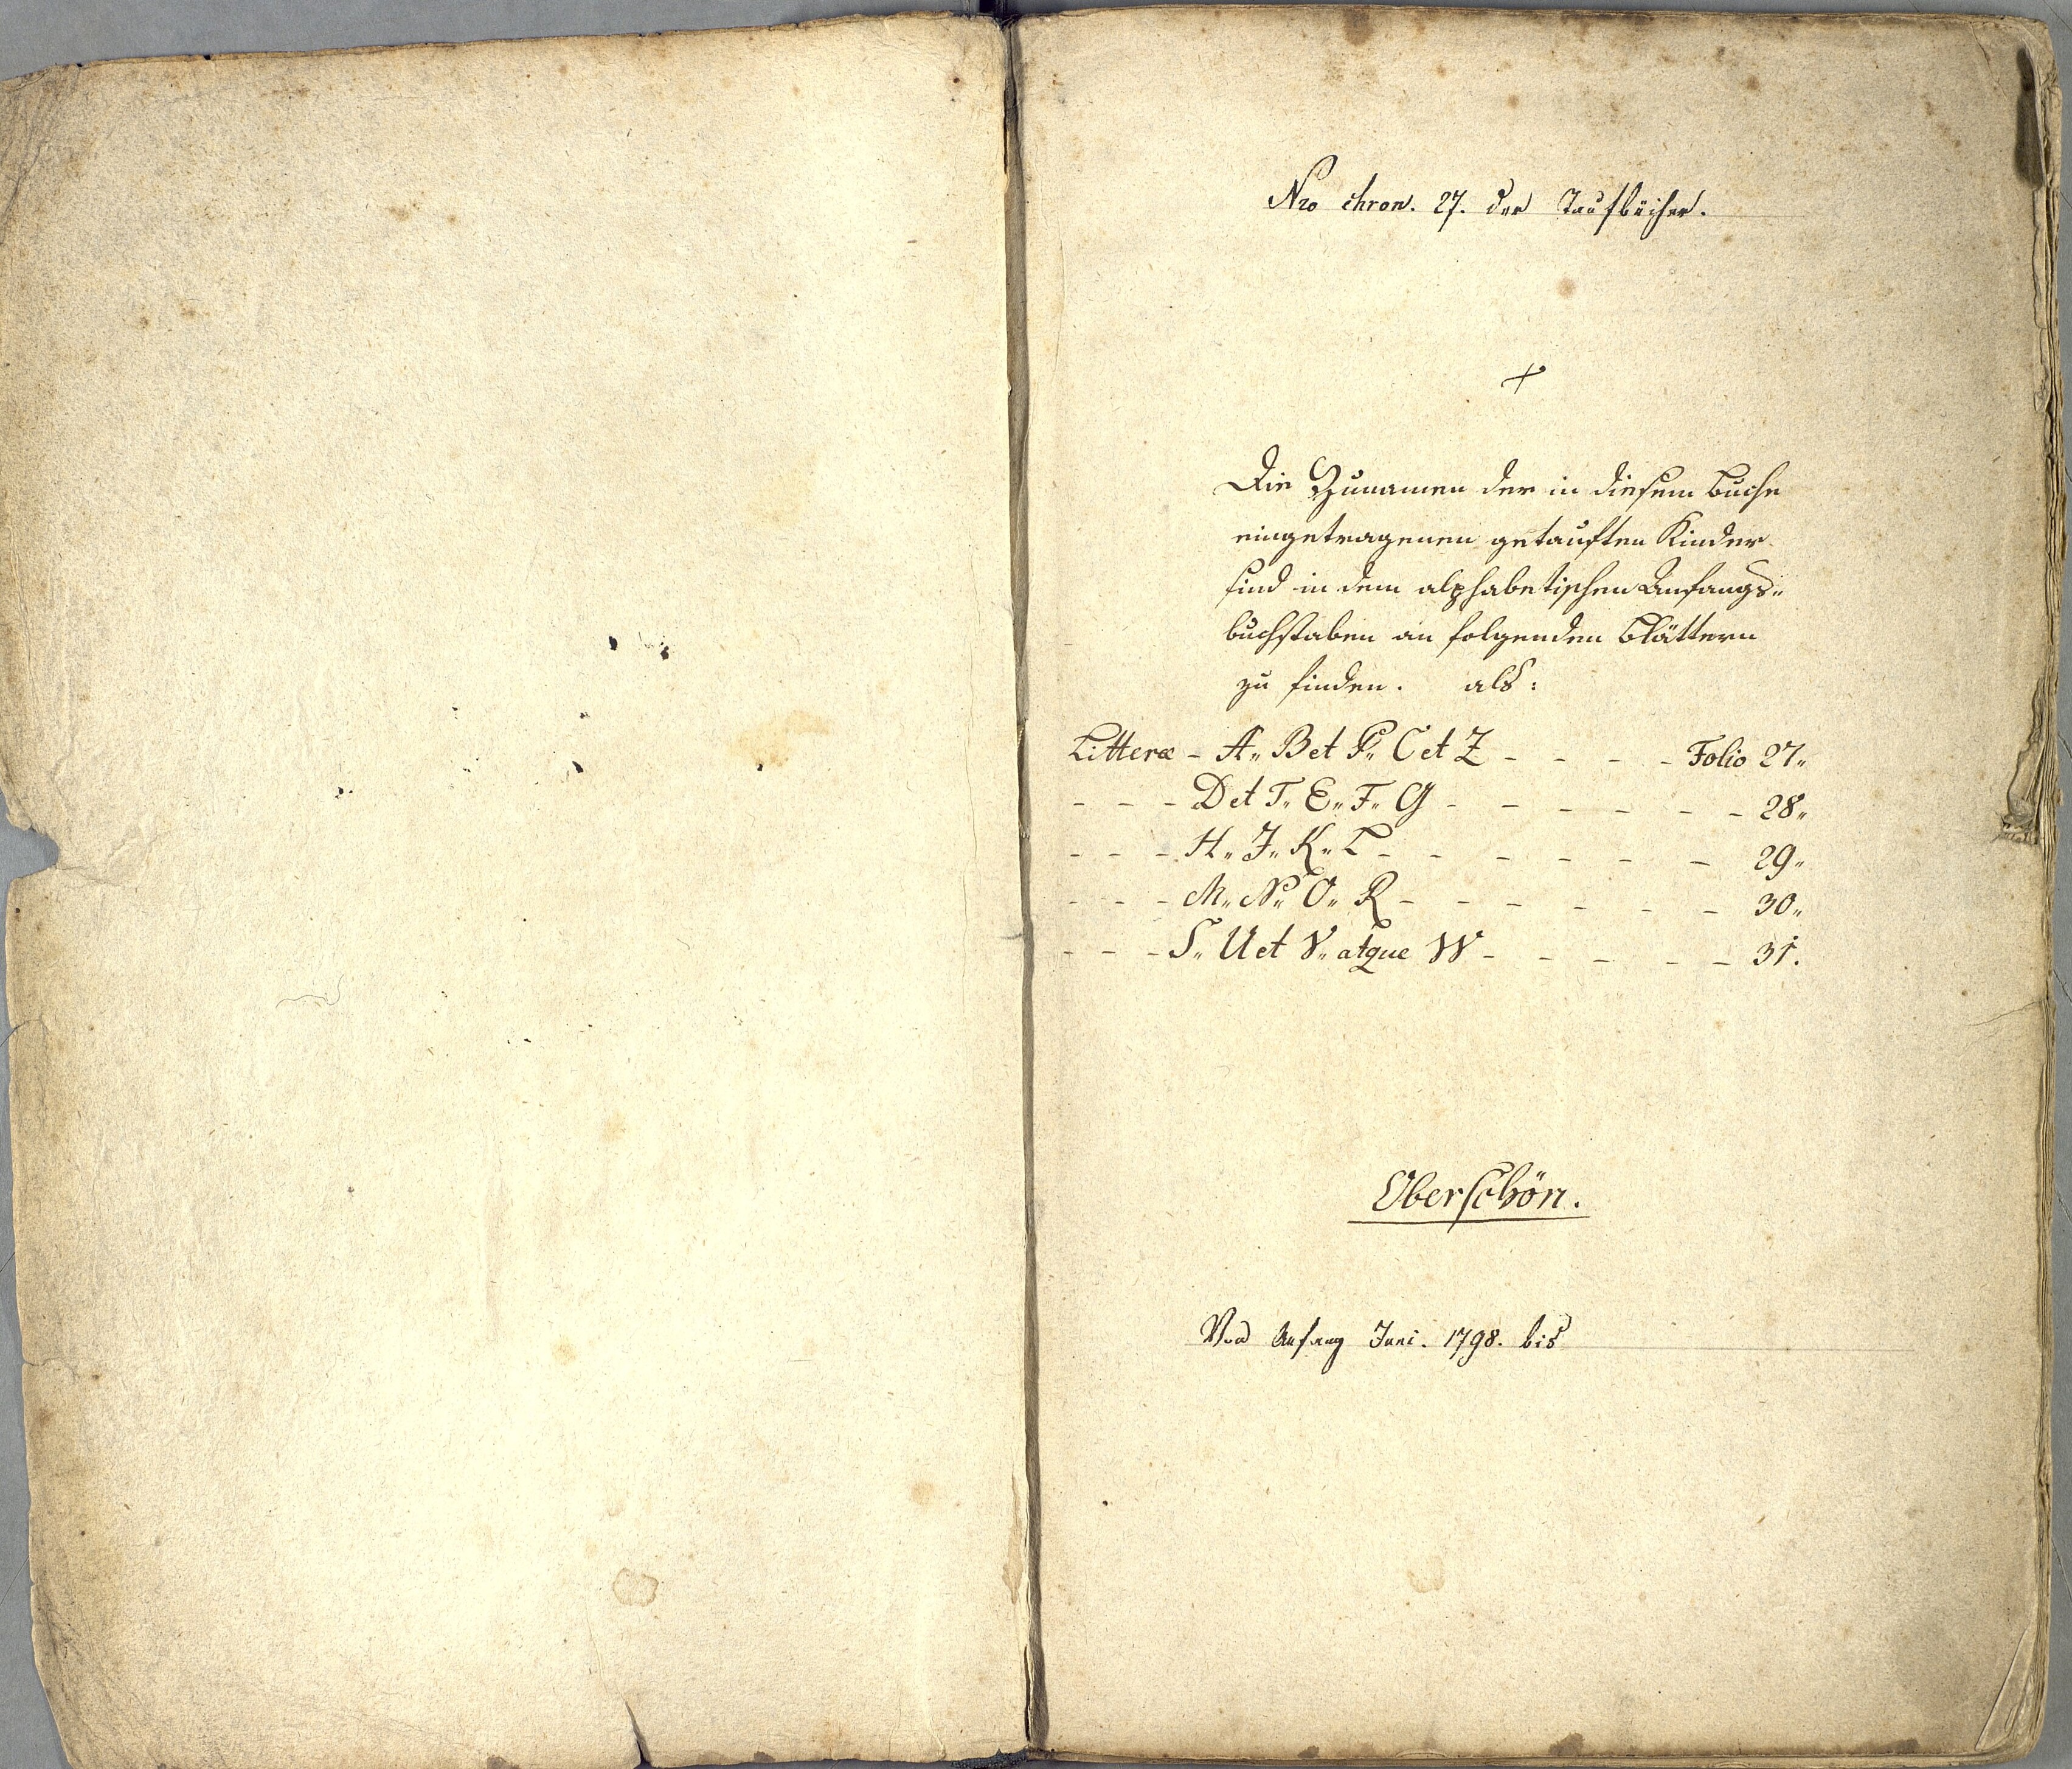 Nro chron. 27. der Taufbücher.
Die Zunamen der in diesem Buche
eingetragenen getauften Kinder
sind in dem alphabetischen Anfangs„
buchstaben an folgenden Blättern
zu finden. als:
Litteræ - A„ B et P„ C et Z - - - - Folio 27„
- - - D et T„ E„ F„ G - - - - - - 28„
- - - H„ J„ K„ L - - - - - - 29„
- - - M„ N„ O„ R - - - - - - 30„
- - - S„ U et V„ atque W - - - - - 31.
Oberschön.
Von Anfang Juni. 1798. bis